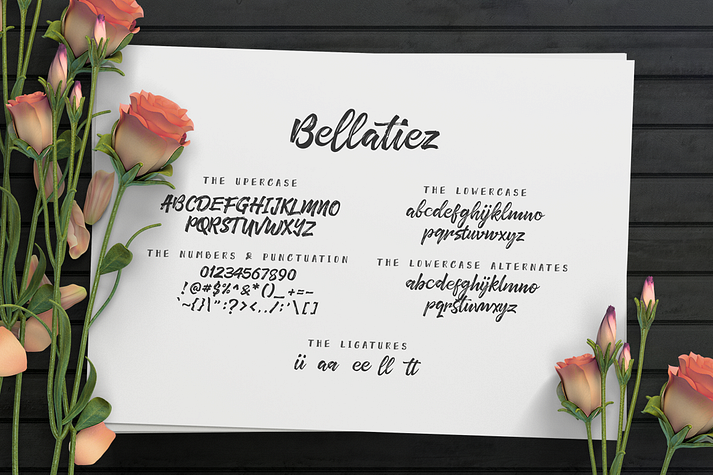 Bellatiez
THE UPERCASE
ABCDEFGHIJKLMNO
PQRSTUVWXYZ
THE NUMBERS & PUNCTUATION
01234567890
!@#$%^&*()_+=-
`~{}\":?><,./;'\[]
THE LOWERCASE
abcdefghijklmno
pqrstuvwxyz
THE LOWERCASE ALTERNATES
abcdefghijklmno
pqrstuvwxyz
THE LIGATURES
ii aa ee ll tt